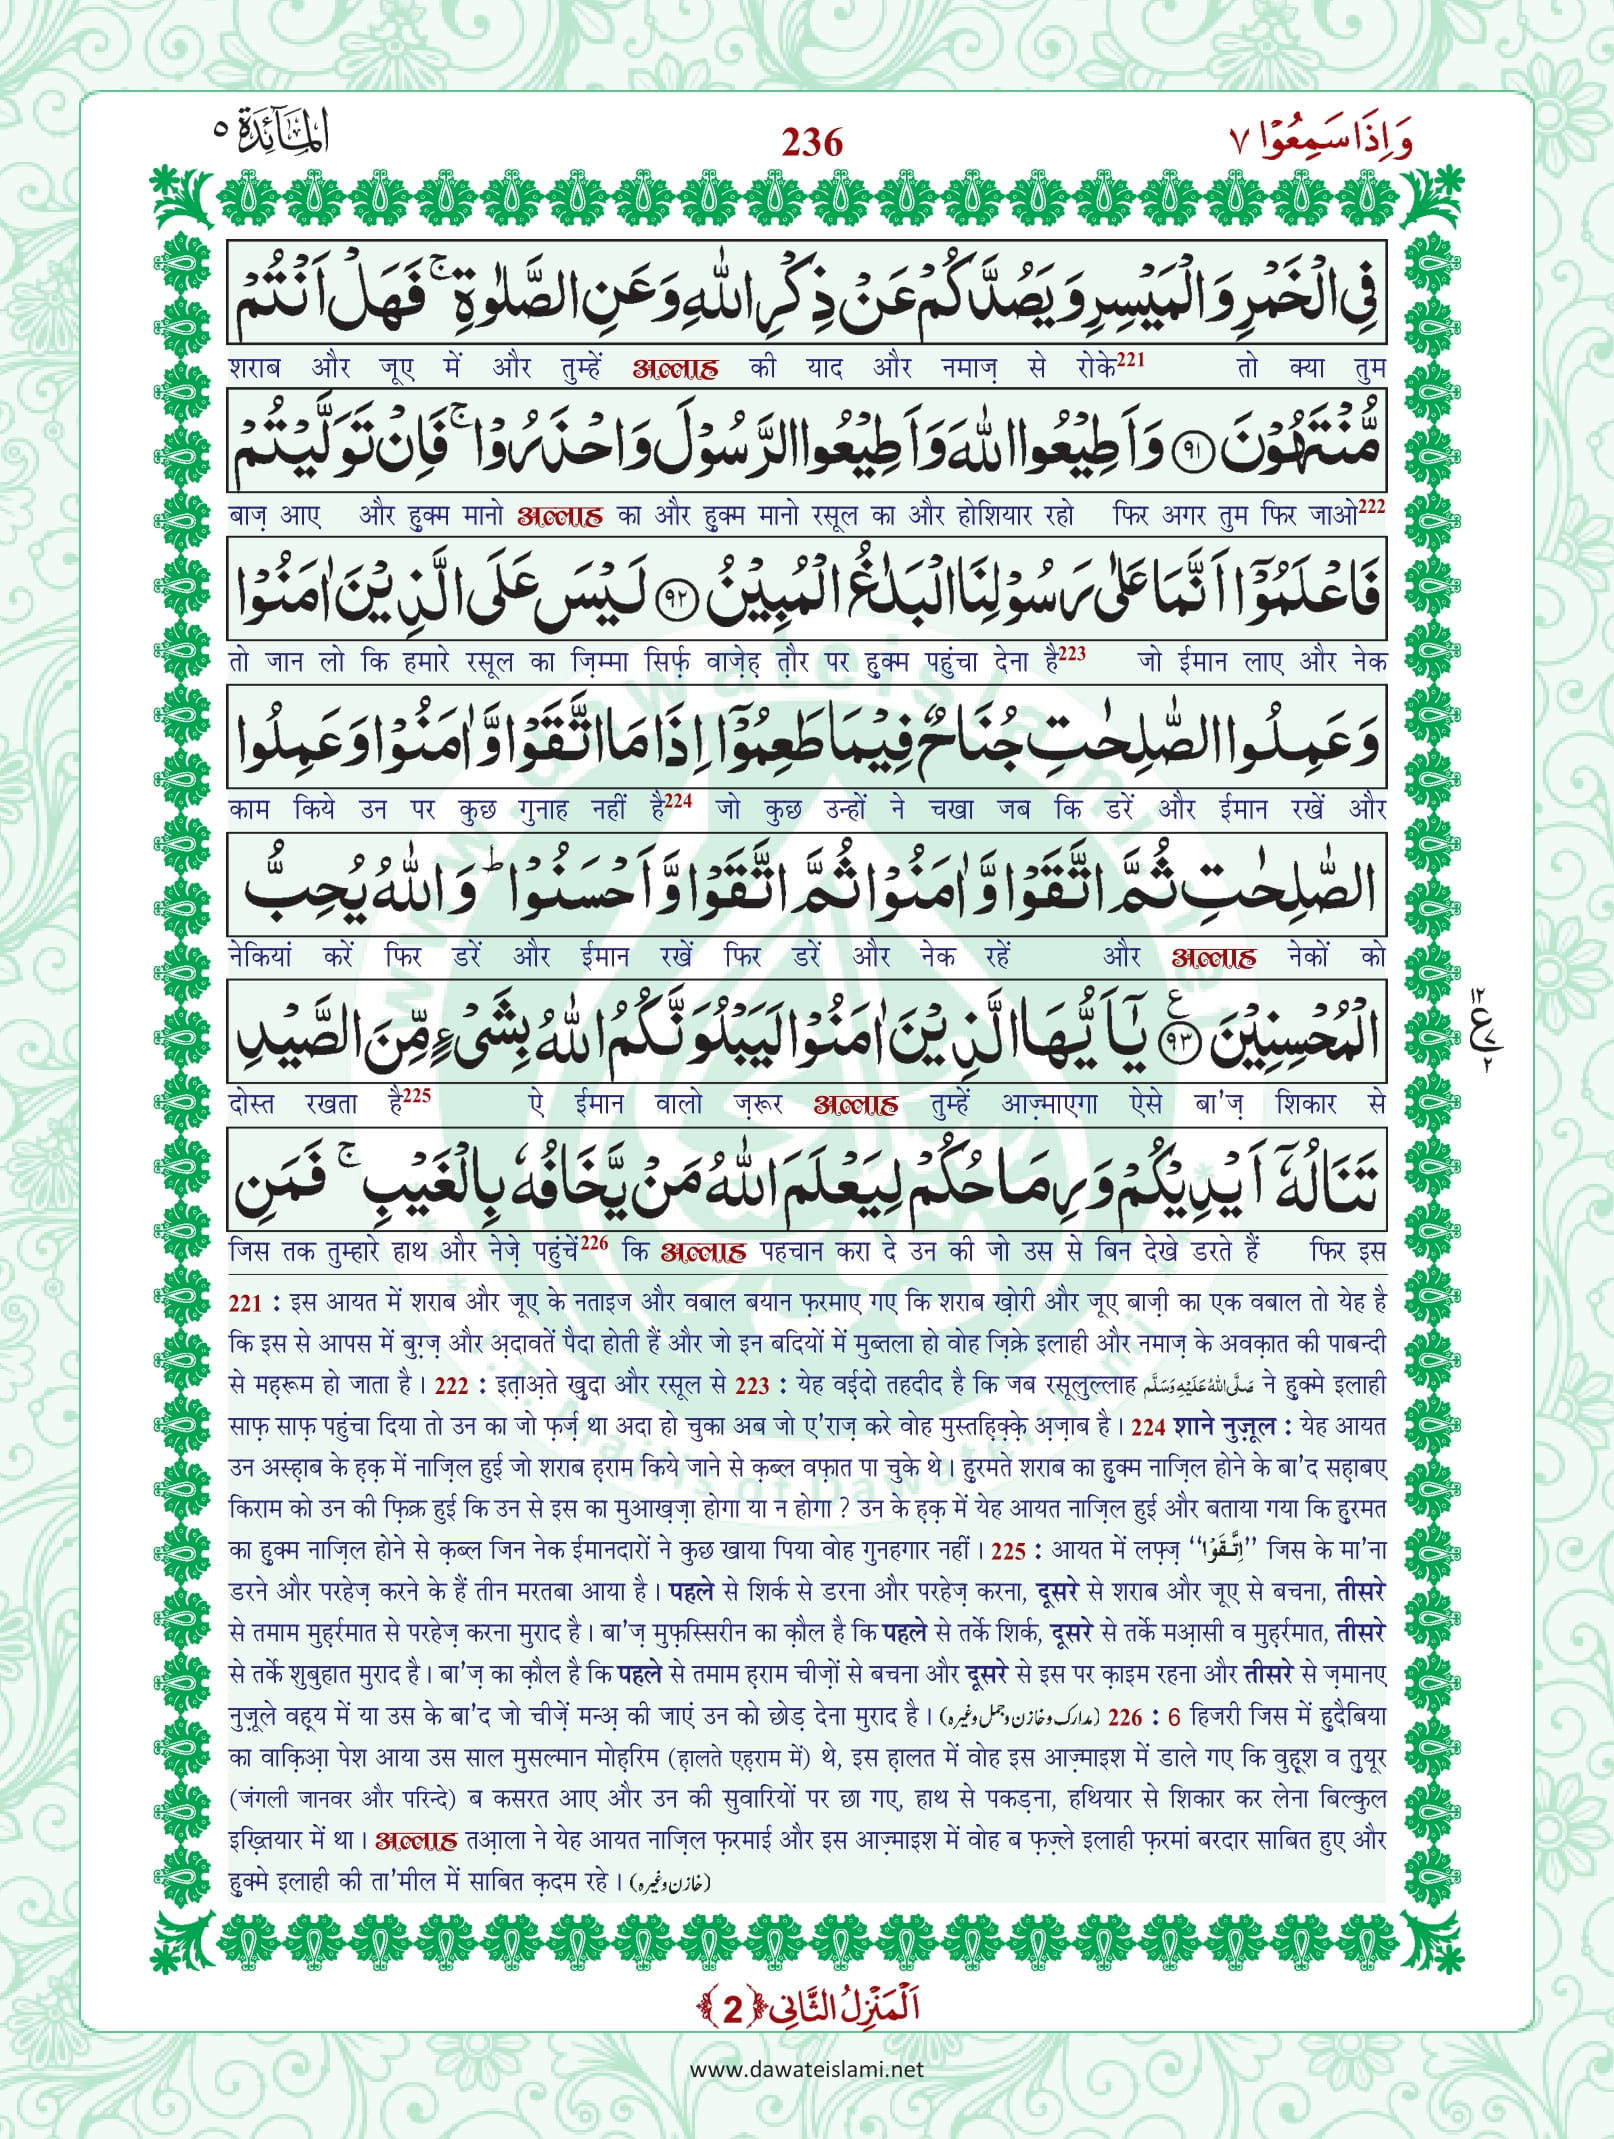 وَاِذَا سَمِعُوْا ٧
236
اَلْمَآئِدَة ٥
فِی الْخَمْرِ وَ الْمَیْسِرِ وَ یَصُدَّكُمْ عَنْ ذِكْرِ اللّٰهِ وَ عَنِ الصَّلٰوةِ ۚ فَهَلْ اَنْتُمْ
शराब और जूए में और तुम्हें अल्लाह की याद और नमाज़ से रोके221 तो क्या तुम
مُّنْتَهُوْنَ ﴿۹۱﴾ وَ اَطِیْعُوا اللّٰهَ وَ اَطِیْعُوا الرَّسُوْلَ وَ احْذَرُوْا ۚ فَاِنْ تَوَلَّیْتُمْ
बाज़ आए और हुक्म मानो अल्लाह का और हुक्म मानो रसूल का और होशियार रहो फिर अगर तुम फिर जाओ222
فَاعْلَمُوْۤا اَنَّمَا عَلٰى رَسُوْلِنَا الْبَلٰغُ الْمُبِیْنُ ﴿۹۲﴾ لَیْسَ عَلَى الَّذِیْنَ اٰمَنُوْا
तो जान लो कि हमारे रसूल का ज़िम्मा सिर्फ़ वाज़ेह़ त़ौर पर हुक्म पहुंचा देना है223 जो ईमान लाए और नेक
وَ عَمِلُوا الصّٰلِحٰتِ جُنَاحٌ فِیْمَا طَعِمُوْۤا اِذَا مَا اتَّقَوْا وَّ اٰمَنُوْا وَ عَمِلُوا
काम किये उन पर कुछ गुनाह नहीं है224 जो कुछ उन्हों ने चखा जब कि डरें और ईमान रखें और
الصّٰلِحٰتِ ثُمَّ اتَّقَوْا وَّ اٰمَنُوْا ثُمَّ اتَّقَوْا وَّ اَحْسَنُوْا ؕ وَ اللّٰهُ یُحِبُّ
नेकियां करें फिर डरें और ईमान रखें फिर डरें और नेक रहें और अल्लाह नेकों को
الْمُحْسِنِیْنَ ﴿۹۳﴾ ع یٰۤاَیُّهَا الَّذِیْنَ اٰمَنُوْا لَیَبْلُوَنَّكُمُ اللّٰهُ بِشَیْءٍ مِّنَ الصَّیْدِ
١٢ ع ٧ ٢
दोस्त रखता है225 ऐ ईमान वालो ज़रूर अल्लाह तुम्हें आज़्माएगा ऐसे बा'ज़ शिकार से
تَنَالُهٗۤ اَیْدِیْكُمْ وَ رِمَاحُكُمْ لِیَعْلَمَ اللّٰهُ مَنْ یَّخَافُهٗ بِالْغَیْبِ ۚ فَمَنِ
जिस तक तुम्हारे हाथ और नेज़े पहुंचें226 कि अल्लाह पहचान करा दे उन की जो उस से बिन देखे डरते हैं फिर इस
221 : इस आयत में शराब और जूए के नताइज और वबाल बयान फ़रमाए गए कि शराब ख़ोरी और जूए बाज़ी का एक वबाल तो येह है
कि इस से आपस में बुग़्ज़ और अ़दावतें पैदा होती हैं और जो इन बदियों में मुब्तला हो वोह ज़िक्रे इलाही और नमाज़ के अवक़ात की पाबन्दी
से मह़रूम हो जाता है। 222 : इत़ाअ़ते खुदा और रसूल से 223 : येह वईदो तहदीद है कि जब रसूलुल्लाह صَلَّى اللهُ عَلَيْهِ وَسَلَّم ने हुक्मे इलाही
साफ़ साफ़ पहुंचा दिया तो उन का जो फ़र्ज़ था अदा हो चुका अब जो ए'राज़ करे वोह मुस्तह़िक़्क़े अ़ज़ाब है। 224 शाने नुज़ूल : येह आयत
उन अस्ह़ाब के ह़क़ में नाज़िल हुई जो शराब ह़राम किये जाने से क़ब्ल वफ़ात पा चुके थे। हुरमते शराब का हुक्म नाज़िल होने के बा'द सह़ाबए
किराम को उन की फ़िक्र हुई कि उन से इस का मुआख़ज़ा होगा या न होगा ? उन के ह़क़ में येह आयत नाज़िल हुई और बताया गया कि हुरमत
का हुक्म नाज़िल होने से क़ब्ल जिन नेक ईमानदारों ने कुछ खाया पिया वोह गुनहगार नहीं। 225 : आयत में लफ़्ज़ ‘‘اِتَّقَوْا’’ जिस के मा'ना
डरने और परहेज़ करने के हैं तीन मरतबा आया है। पहले से शिर्क से डरना और परहेज़ करना, दूसरे से शराब और जूए से बचना, तीसरे
से तमाम मुह़र्रमात से परहेज़ करना मुराद है। बा'ज़ मुफ़स्सिरीन का क़ौल है कि पहले से तर्के शिर्क, दूसरे से तर्के मआ़सी व मुह़र्रमात, तीसरे
से तर्के शुबुहात मुराद है। बा'ज़ का क़ौल है कि पहले से तमाम ह़राम चीज़ों से बचना और दूसरे से इस पर क़ाइम रहना और तीसरे से ज़मानए
नुज़ूले वह़्य में या उस के बा'द जो चीज़ें मन्अ़ की जाएं उन को छोड़ देना मुराद है। (مدارک و خازن و جمل وغیرہ) 226 : 6 हिजरी जिस में हुदैबिया
का वाक़िआ़ पेश आया उस साल मुसल्मान मोह़रिम (ह़ालते एह़राम में) थे, इस ह़ालत में वोह इस आज़्माइश में डाले गए कि वुहूश व तुयूर
(जंगली जानवर और परिन्दे) ब कसरत आए और उन की सुवारियों पर छा गए, हाथ से पकड़ना, हथियार से शिकार कर लेना बिल्कुल
इख़्तियार में था। अल्लाह तआ़ला ने येह आयत नाज़िल फ़रमाई और इस आज़्माइश में वोह ब फ़ज़्ले इलाही फ़रमां बरदार साबित हुए और
हुक्मे इलाही की ता'मील में साबित क़दम रहे। (خازن وغیرہ)
اَلْمَنْزِلُ الثَّانِی ﴿2﴾
www.dawateislami.net